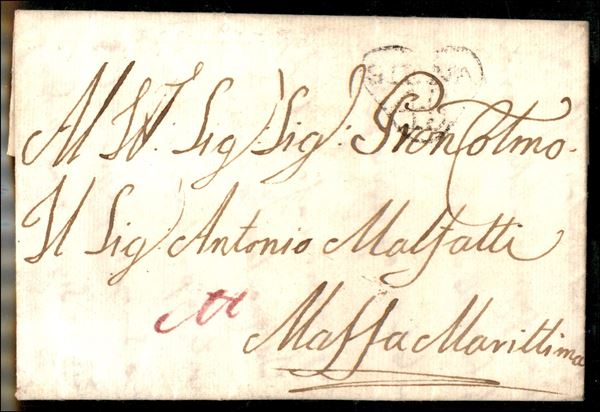 SIENA
Al Ill: Sig Sig: Pron Colmo.
Il Sig Antonio Malfatti
Massa Marittima